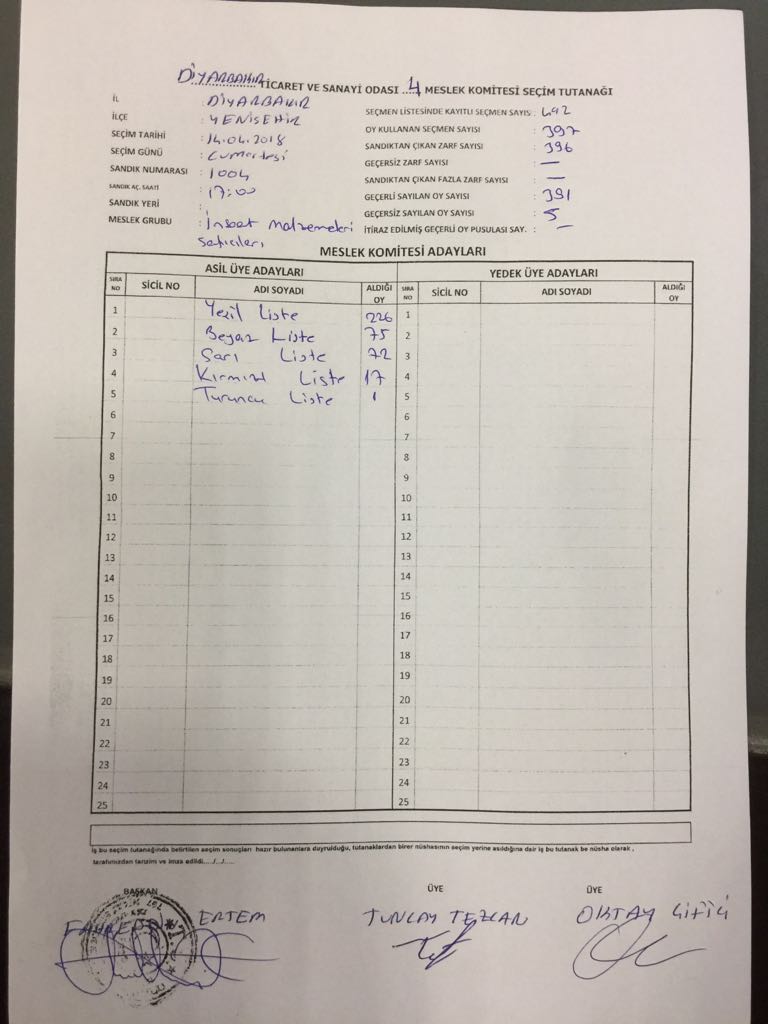 DİYARBAKIR TİCARET VE SANAYİ ODASI ..4 MESLEK KOMİTESİ SEÇİM TUTANAĞI
İL : DİYARBAKIR
İLÇE : YENİSEHİR
SEÇİM TARİHİ : 14.04.2018
SEÇİM GÜNÜ : Cumartesi
SANDIK NUMARASI : 1004
SANDIK AÇ. SAATİ : 17:00
SANDIK YERİ :
MESLEK GRUBU : İnşaat Malzemeleri
Satıcıları
SEÇMEN LİSTESİNDE KAYITLI SEÇMEN SAYIS : 492
OY KULLANAN SEÇMEN SAYISI : 397
SANDIKTAN ÇIKAN ZARF SAYISI : 396
GEÇERSİZ ZARF SAYISI : —
SANDIKTAN ÇIKAN FAZLA ZARF SAYISI : —
GEÇERLİ SAYILAN OY SAYISI : 391
GEÇERSİZ SAYILAN OY SAYISI : 5
İTİRAZ EDİLMİŞ GEÇERLİ OY PUSULASI SAY. : —
MESLEK KOMİTESİ ADAYLARI
ASİL ÜYE ADAYLARI YEDEK ÜYE ADAYLARI
SIRA NO SİCİL NO ADI SOYADI ALDIĞI OY SIRA NO SİCİL NO ADI SOYADI ALDIĞI OY
1 Yeşil Liste 226 1
2 Beyaz Liste 75 2
3 Sarı Liste 72 3
4 Kırmızı Liste 17 4
5 Turuncu Liste 1 5
6 6
7 7
8 8
9 9
10 10
11 11
12 12
13 13
14 14
15 15
16 16
17 17
18 18
19 19
20 20
21 21
22 22
23 23
24 24
25 25
İş bu seçim tutanağında belirtilen seçim sonuçları hazır bulunanlara duyrulduğu, tutanaklardan birer nüshasının seçim yerine asıldığına dair iş bu tutanak be nüsha olarak ,
tarafımızdan tanzim ve imza edildi..../../....
BAŞKAN ÜYE ÜYE
ERTEM TUNCAY TEZCAN OKTAY ÇİFÇİ